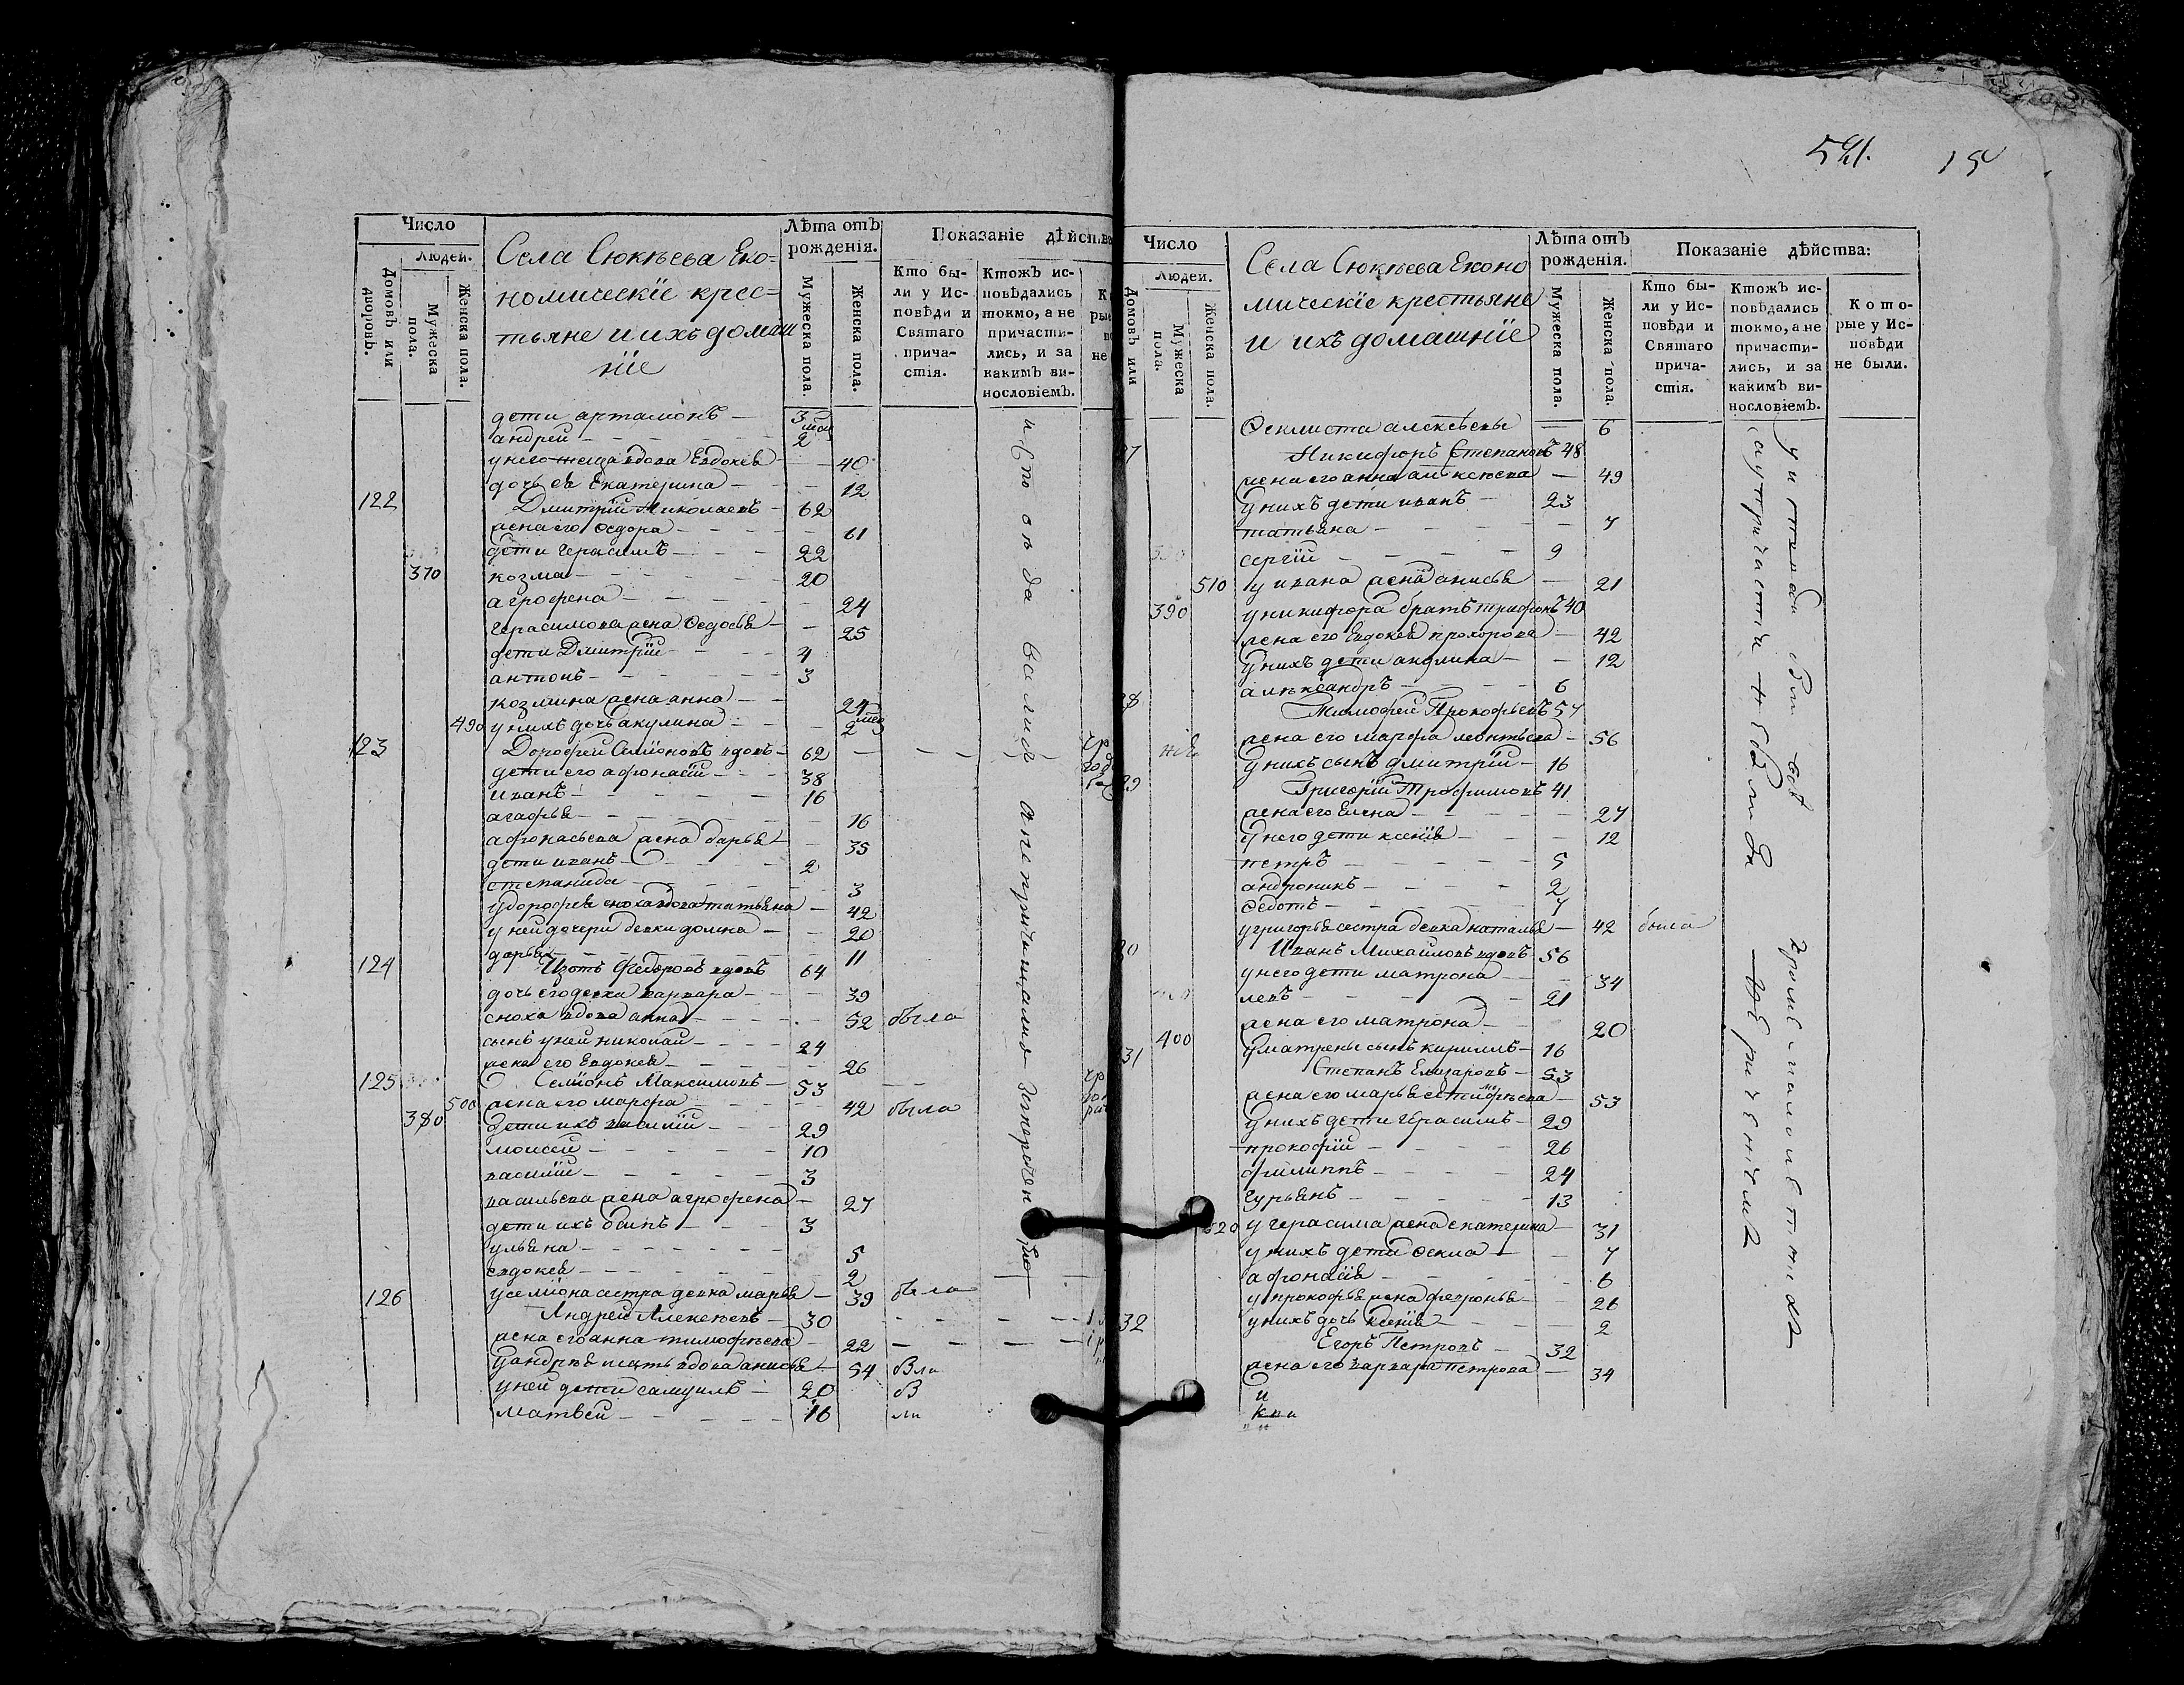 Число
Людей.
Домовъ или дворовъ.
Мужеска пола.
Женска пола.
Села Сюкѣева Эко=
номическїе крес=
тьяне и ихъ домаш
нїе
Лѣта отъ рожденія.
Мужеска пола.
Женска пола.
Показаніе дѣйства
Кто бы-
ли у Ис-
повѣди и
Святаго
прича-
стія.
Ктожъ ис-
повѣдались
токмо, а не
причасти-
лись, и за
какимъ ви-
нословіемъ.
дети артамонъ — 3
андрей — 2
у него теща вдова Евдокея — 40
дочь ея Екатерина — 12
122 Дмитрїй Николаевъ — 62
жена его Ѳедора — 61
дети Герасимъ — 22
370 козма — 20
агрофена — 24
Герасимова жена Ѳедосья — 25
дети Дмитрїй — 4
антонъ — 3
козмина жена анна — 24
490 у нихъ дочь акулина — 2
123 Дорофей Семїоновъ вдовъ — 62
дети его афонасїй — 38
иванъ — 16
агафья — 16
афонасьева жена дарья — 35
дети иванъ — 2
степанида — 3
у дорофея сноха вдова татьяна — 42
у ней дочери девки домна — 20
дарья — 11
124 Изотъ Федоровъ вдовъ 64
дочь его девка варвара — 39
сноха вдова анна — 52 была
сынъ у ней николай — 24
жена его Евдокея — 26
125 Семїонъ Максимовъ — 53
500 жена его марфа — 42 была
380 дети ихъ василїй — 29
моисей — 10
василїй — 3
васильева жена агрофена — 27
дети ихъ осипъ — 3
ульяна — 5
евдокея — 2
126 у семїона сестра девка марья — 39 была
Андрей Алексѣевъ — 30
жена его анна тимофѣева — 22
у андрѣя мать вдова анисья — 54
у ней дети самуилъ — 20
матвей — 16
541.
Число
Людей.
Домовъ или
Мужеска пола.
Женска пола.
Села Сюкѣева Эконо
мическїе крестьяне
и ихъ домашнїе
Лѣта отъ рожденія.
Мужеска пола.
Женска пола.
Показаніе дѣйства:
Кто бы-
ли у Ис-
повѣди и
Святаго
прича-
стія.
Ктожъ ис-
повѣдались
токмо, а не
причасти-
лись, и за
какимъ ви-
нословіемъ.
Кото-
рые у Ис-
повѣди
не были.
Ѳеклиста алексѣевы — 6
7 Никифоръ Степановъ 48
жена его анна алексѣева — 49
у нихъ дети иванъ — 23
татьяна — 7
сергїй — 9
510 у ивана жена анисья — 21
390 у никифора братъ трифонъ 40
жена его Евдокея прохорова — 42
у нихъ дети акулина — 12
алѣксандръ — 6
8 Тимофей Прокофьевъ 57
жена его марфа леонтьева — 56
у нихъ сынъ дмитрїй — 16
29 Григорїй Трофимовъ 41
жена его Елена — 27
у него дети ксенїя — 12
петръ — 5
андроникъ — 2
Ѳедотъ — 7
у григорья сестра девка наталья — 42 была
30 Иванъ Михайловъ вдовъ 56
у него дети матрона — 34
левъ — 21
жена его матрона — 20
400 у матрены сынъ кириллъ — 16
31 Степанъ Елизаровъ — 53
жена его марья — 53
у нихъ дети Герасимъ — 29
прокофїй — 26
филиппъ — 24
Гурьянъ — 13
520 у герасима жена екатерина — 31
у нихъ дети Ѳекла — 7
афонасїя — 6
у прокофья жена февронья — 26
у нихъ дочь ксенїя — 2
32 Егоръ Петровъ — 32
жена его варвара петрова — 34